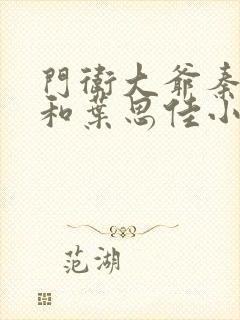 門衛大爺秦
和葉思佳小
范湖